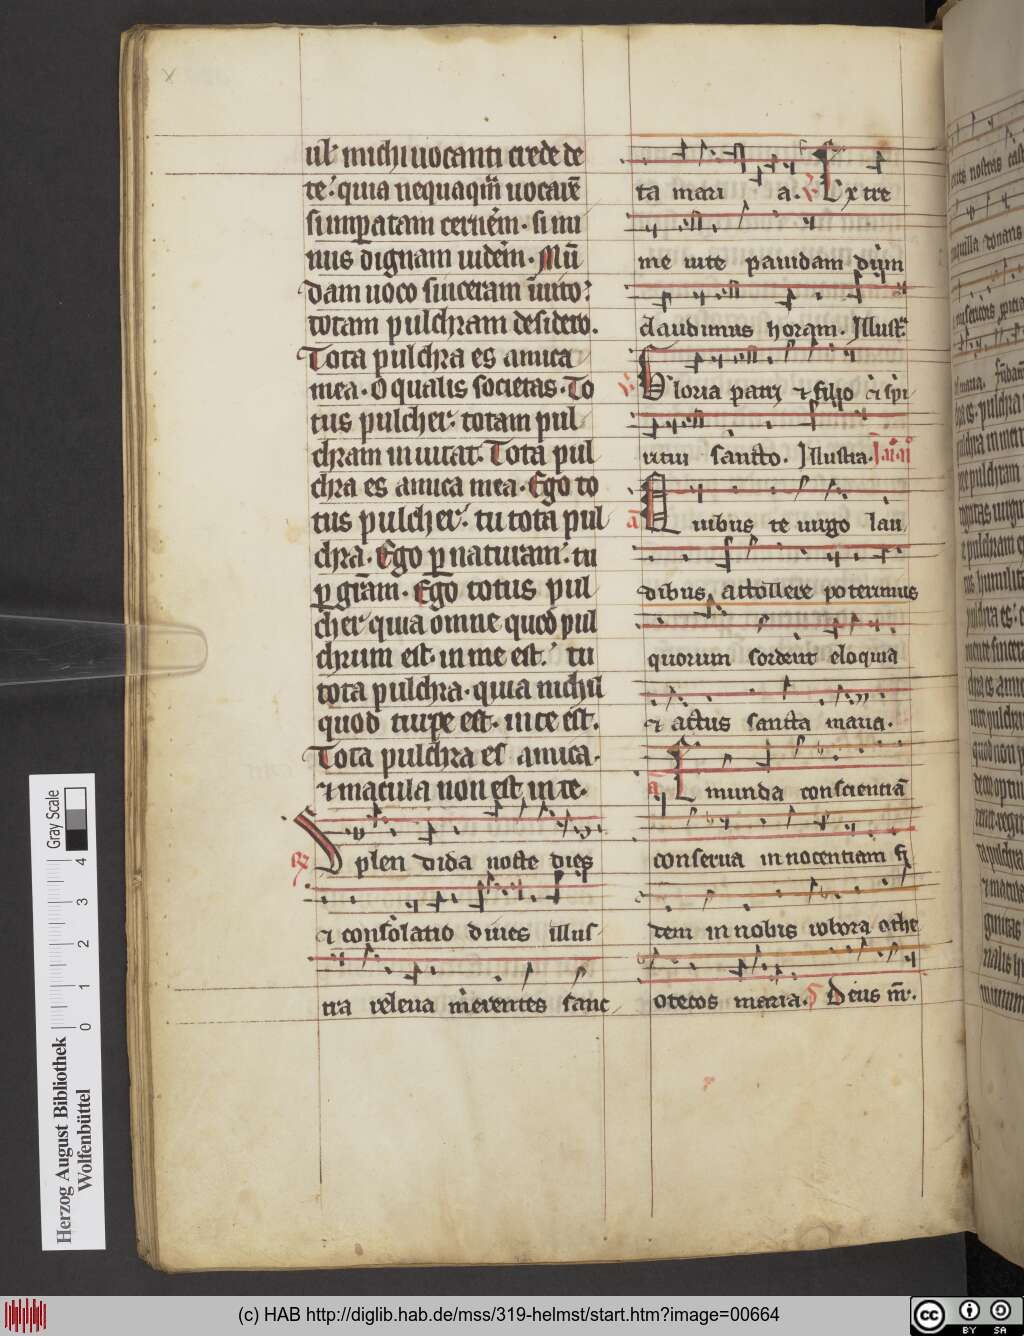 ul' michi uocanti crede de
te. quia nequaqm uocarē
si inpatam cernerem. si mi
nus dignam uiderem. Mū
dam uoco sinceram inuito.
totam pulchram desidero.
Tota pulchra es amica
mea. O qualis societas. To
tus pulcher. totam pul
chram inuitat. Tota pul
chra es amica mea. Ego to
tus pulcher. tu tota pul
chra. Ego p naturam. tu
p grām. Ego totus pul
cher quia omne quod pul
chrum est. in me est. tu
tota pulchra. quia nichil
quod turpe est. in te est.
Tota pulchra es amica.
et macula non est in te.
Splen dida nocte dies
et consolatio dities illus
tra releua merentes sanc
ta mari a. Extre
me uite pauidam dum
claudimus horam. Illust
Gloria patri et filio et spi
ritui sancto. Illustra.
a Quibus te uirgo lau
dibus attollere poterimus
quorum sordent eloquia
et actus sancta maria.
a Emunda conscientiā
conserua innocentiam fi
dem in nobis robora o the
otecos maria. Deus m.
Gray Scale
0 1 2 3 4
Herzog August Bibliothek
Wolfenbüttel
(c) HAB http://diglib.hab.de/mss/319-helmst/start.htm?image=00664
cc BY SA